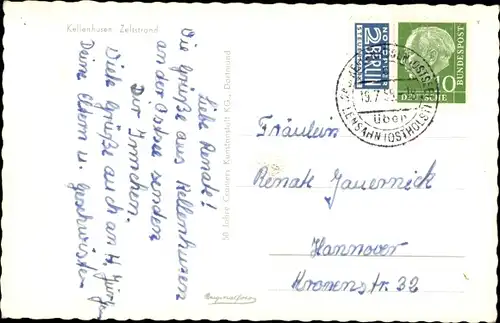 Kellenhusen Zeltstrand
Liebe Renak!
Die Grüße aus Kellenhusen
an der Ostsee senden
Dir Irmchen.
Viele Grüße auch an H. Jürgen
Deine Eltern u. Geschwister
50 Jahre Cramers Kunstanstalt KG., Dortmund
NOTOPFER
2 BERLIN
STEUERMARKE
DEUTSCHE
BUNDESPOST
10
über
LENSAHN (OSTHOLST)
Fräulein
Renak Jauernick
Hannover
Kronenstr. 32